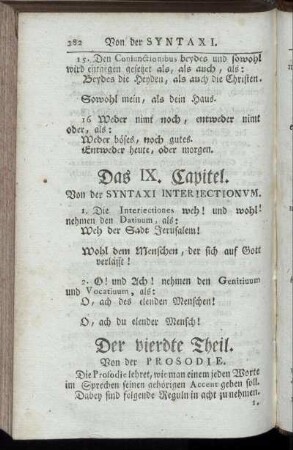 282 Von der SYNTAXI.
15. Den Coniunctionibus beydes und sowohl
wird entgegen gesetzet als, als auch, als:
Beydes die Heyden, als auch die Christen.
Sowohl mein, als dein Haus.
16 Weder nimt noch, entweder nimt
oder, als:
Weder böses, noch gutes.
Entweder heute, oder morgen.
Das IX. Capitel.
Von der SYNTAXI INTERIECTIONVM.
1. Die Interiectiones weh! und wohl!
nehmen den Datiuum, als:
Weh der Stadt Jerusalem!
Wohl dem Menschen, der sich auf Gott
verlässt!
2. O! und Ach! nehmen den Genitiuum
und Vocatiuum, als:
O, ach des elenden Menschen!
O, ach du elender Mensch!
Der vierdte Theil.
Von der PROSODIE.
Die Prosodie lehret, wie man einem jeden Worte
im Sprechen seinen gehörigen Accent geben soll.
Dabey sind folgende Reguln in acht zu nehmen.
1.